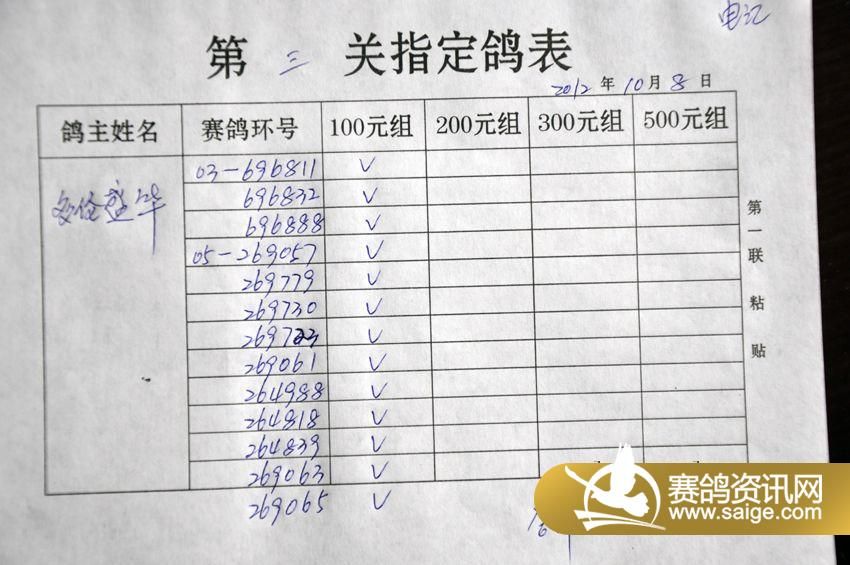 电记
第 三 关指定鸽表
2012 年 10 月 8 日
鸽主姓名 赛鸽环号 100元组 200元组 300元组 500元组
盛华
03-696811 ✓
696832 ✓
696888 ✓
05-269057 ✓
269779 ✓
269730 ✓
269723 ✓
269061 ✓
264988 ✓
264818 ✓
264839 ✓
269063 ✓
269065 ✓
第一联粘贴
赛鸽资讯网
www.saige.com